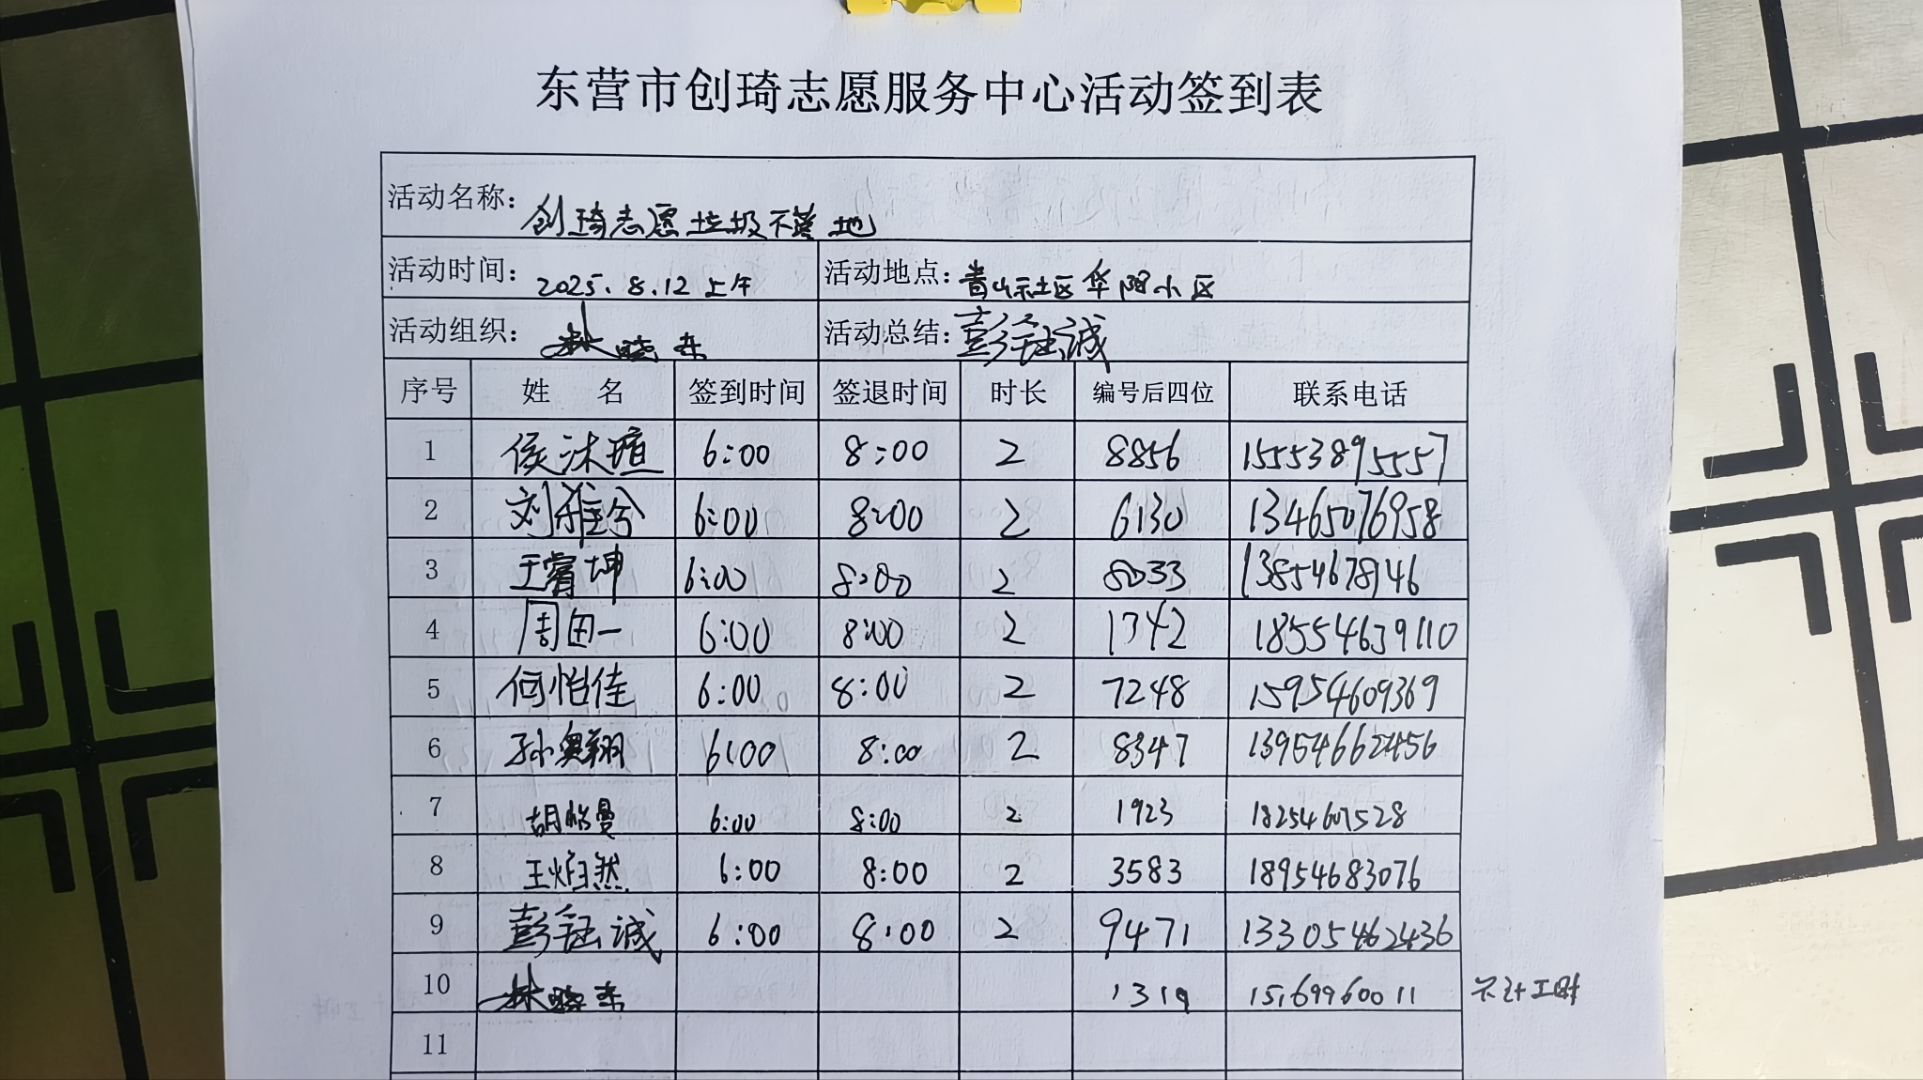 东营市创琦志愿服务中心活动签到表
活动名称: 创琦志愿垃圾不落地
活动时间: 2025.8.12上午 活动地点: 青山社区华阳小区
活动组织: 林晓东 活动总结: 彭钰诚
序号 姓 名 签到时间 签退时间 时长 编号后四位 联系电话
1 侯沐瑄 6:00 8:00 2 8856 15553895557
2 刘雅兮 6:00 8:00 2 6130 13465076958
3 王睿坤 6:00 8:00 2 8033 13854678146
4 周田一 6:00 8:00 2 1342 18554639110
5 何怡佳 6:00 8:00 2 7248 15954609369
6 孙奥翔 6:00 8:00 2 8347 13954662456
7 胡怡曼 6:00 8:00 2 1923 18254607528
8 王焰然 6:00 8:00 2 3583 18954683076
9 彭钰诚 6:00 8:00 2 9471 13305462436
10 林晓东 1319 15169960011 不计工时
11